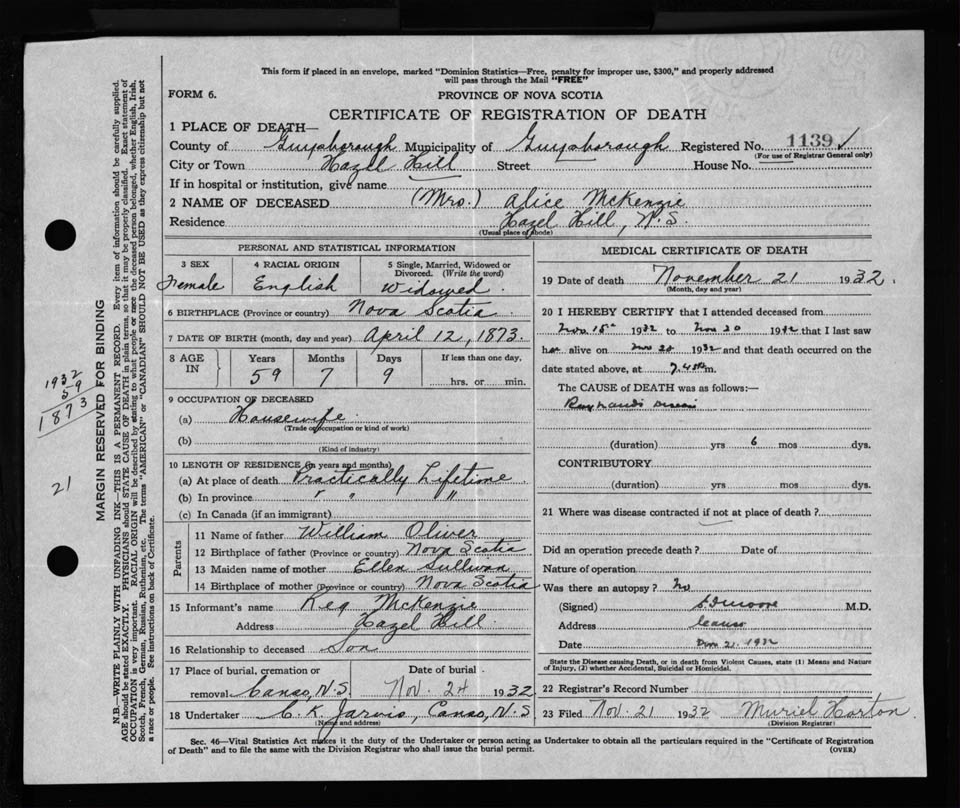 This form if placed in an envelope, marked "Dominion Statistics—Free, penalty for improper use, $300," and properly addressed
will pass through the Mail "FREE"
FORM 6.
PROVINCE OF NOVA SCOTIA
CERTIFICATE OF REGISTRATION OF DEATH
1 PLACE OF DEATH—
County of Guysborough Municipality of Guysborough Registered No. 1139 ✓
(For use of Registrar General only)
City or Town Hazel Hill Street House No.
If in hospital or institution, give name
2 NAME OF DECEASED (Mrs.) Alice McKenzie
Residence Hazel Hill, N.S.
(Usual place of abode)
PERSONAL AND STATISTICAL INFORMATION
3 SEX 4 RACIAL ORIGIN 5 Single, Married, Widowed or
Divorced. (Write the word)
Female English Widowed.
6 BIRTHPLACE (Province or country) Nova Scotia
7 DATE OF BIRTH (month, day and year) April 12, 1873.
8 AGE IN Years Months Days If less than one day,
59 7 9 hrs. or min.
9 OCCUPATION OF DECEASED
(a) Housewife.
(Trade occupation or kind of work)
(b)
(Kind of industry)
10 LENGTH OF RESIDENCE (in years and months)
(a) At place of death Practically Lifetime
(b) In province " " "
(c) In Canada (if an immigrant)
Parents
11 Name of father William Oliver
12 Birthplace of father (Province or country) Nova Scotia
13 Maiden name of mother Ellen Sullivan
14 Birthplace of mother (Province or country) Nova Scotia
15 Informant's name Reg McKenzie
Address Hazel Hill.
16 Relationship to deceased Son
17 Place of burial, cremation or Date of burial
removal Canso, N.S. Nov. 24 1932
18 Undertaker C. K. Jarvis, Canso, N.S
(Name and address)
MEDICAL CERTIFICATE OF DEATH
19 Date of death November 21 1932.
(Month, day and year)
20 I HEREBY CERTIFY that I attended deceased from
Nov 15th 1932 to Nov 20 1932 that I last saw
her alive on Nov 20 1932 and that death occurred on the
date stated above, at 7.45 m.
The CAUSE of DEATH was as follows:—
Raynaud's Disease
(duration) yrs 6 mos dys.
CONTRIBUTORY
(duration) yrs mos dys.
21 Where was disease contracted if not at place of death?
Did an operation precede death? Date of
Nature of operation
Was there an autopsy? No
(Signed) Moore M.D.
Address Canso
Date Nov 21. 1932
State the Disease causing Death, or in death from Violent Causes, state (1) Means and Nature
of Injury, (2) whether Accidental, Suicidal or Homicidal.
22 Registrar's Record Number
23 Filed Nov. 21 1932 Muriel Horton
(Division Registrar)
Sec. 46—Vital Statistics Act makes it the duty of the Undertaker or person acting as Undertaker to obtain all the particulars required in the "Certificate of Registration
of Death" and to file the same with the Division Registrar who shall issue the burial permit. (OVER)
MARGIN RESERVED FOR BINDING
N.B.—WRITE PLAINLY WITH UNFADING INK—THIS IS A PERMANENT RECORD. Every item of information should be carefully supplied.
AGE should be stated EXACTLY. PHYSICIANS should STATE CAUSE OF DEATH in plain terms, so that it may be properly classified. Exact statement of
OCCUPATION is very important. RACIAL ORIGIN will be described by stating to what people or race the deceased person belonged, whether English, Irish,
Scotch, French, German, Russian, Ruthenian, etc. The terms "AMERICAN" or "CANADIAN" SHOULD NOT BE USED as they express citizenship but not
a race or people. See instructions on back of Certificate.
1932
59
1873
21